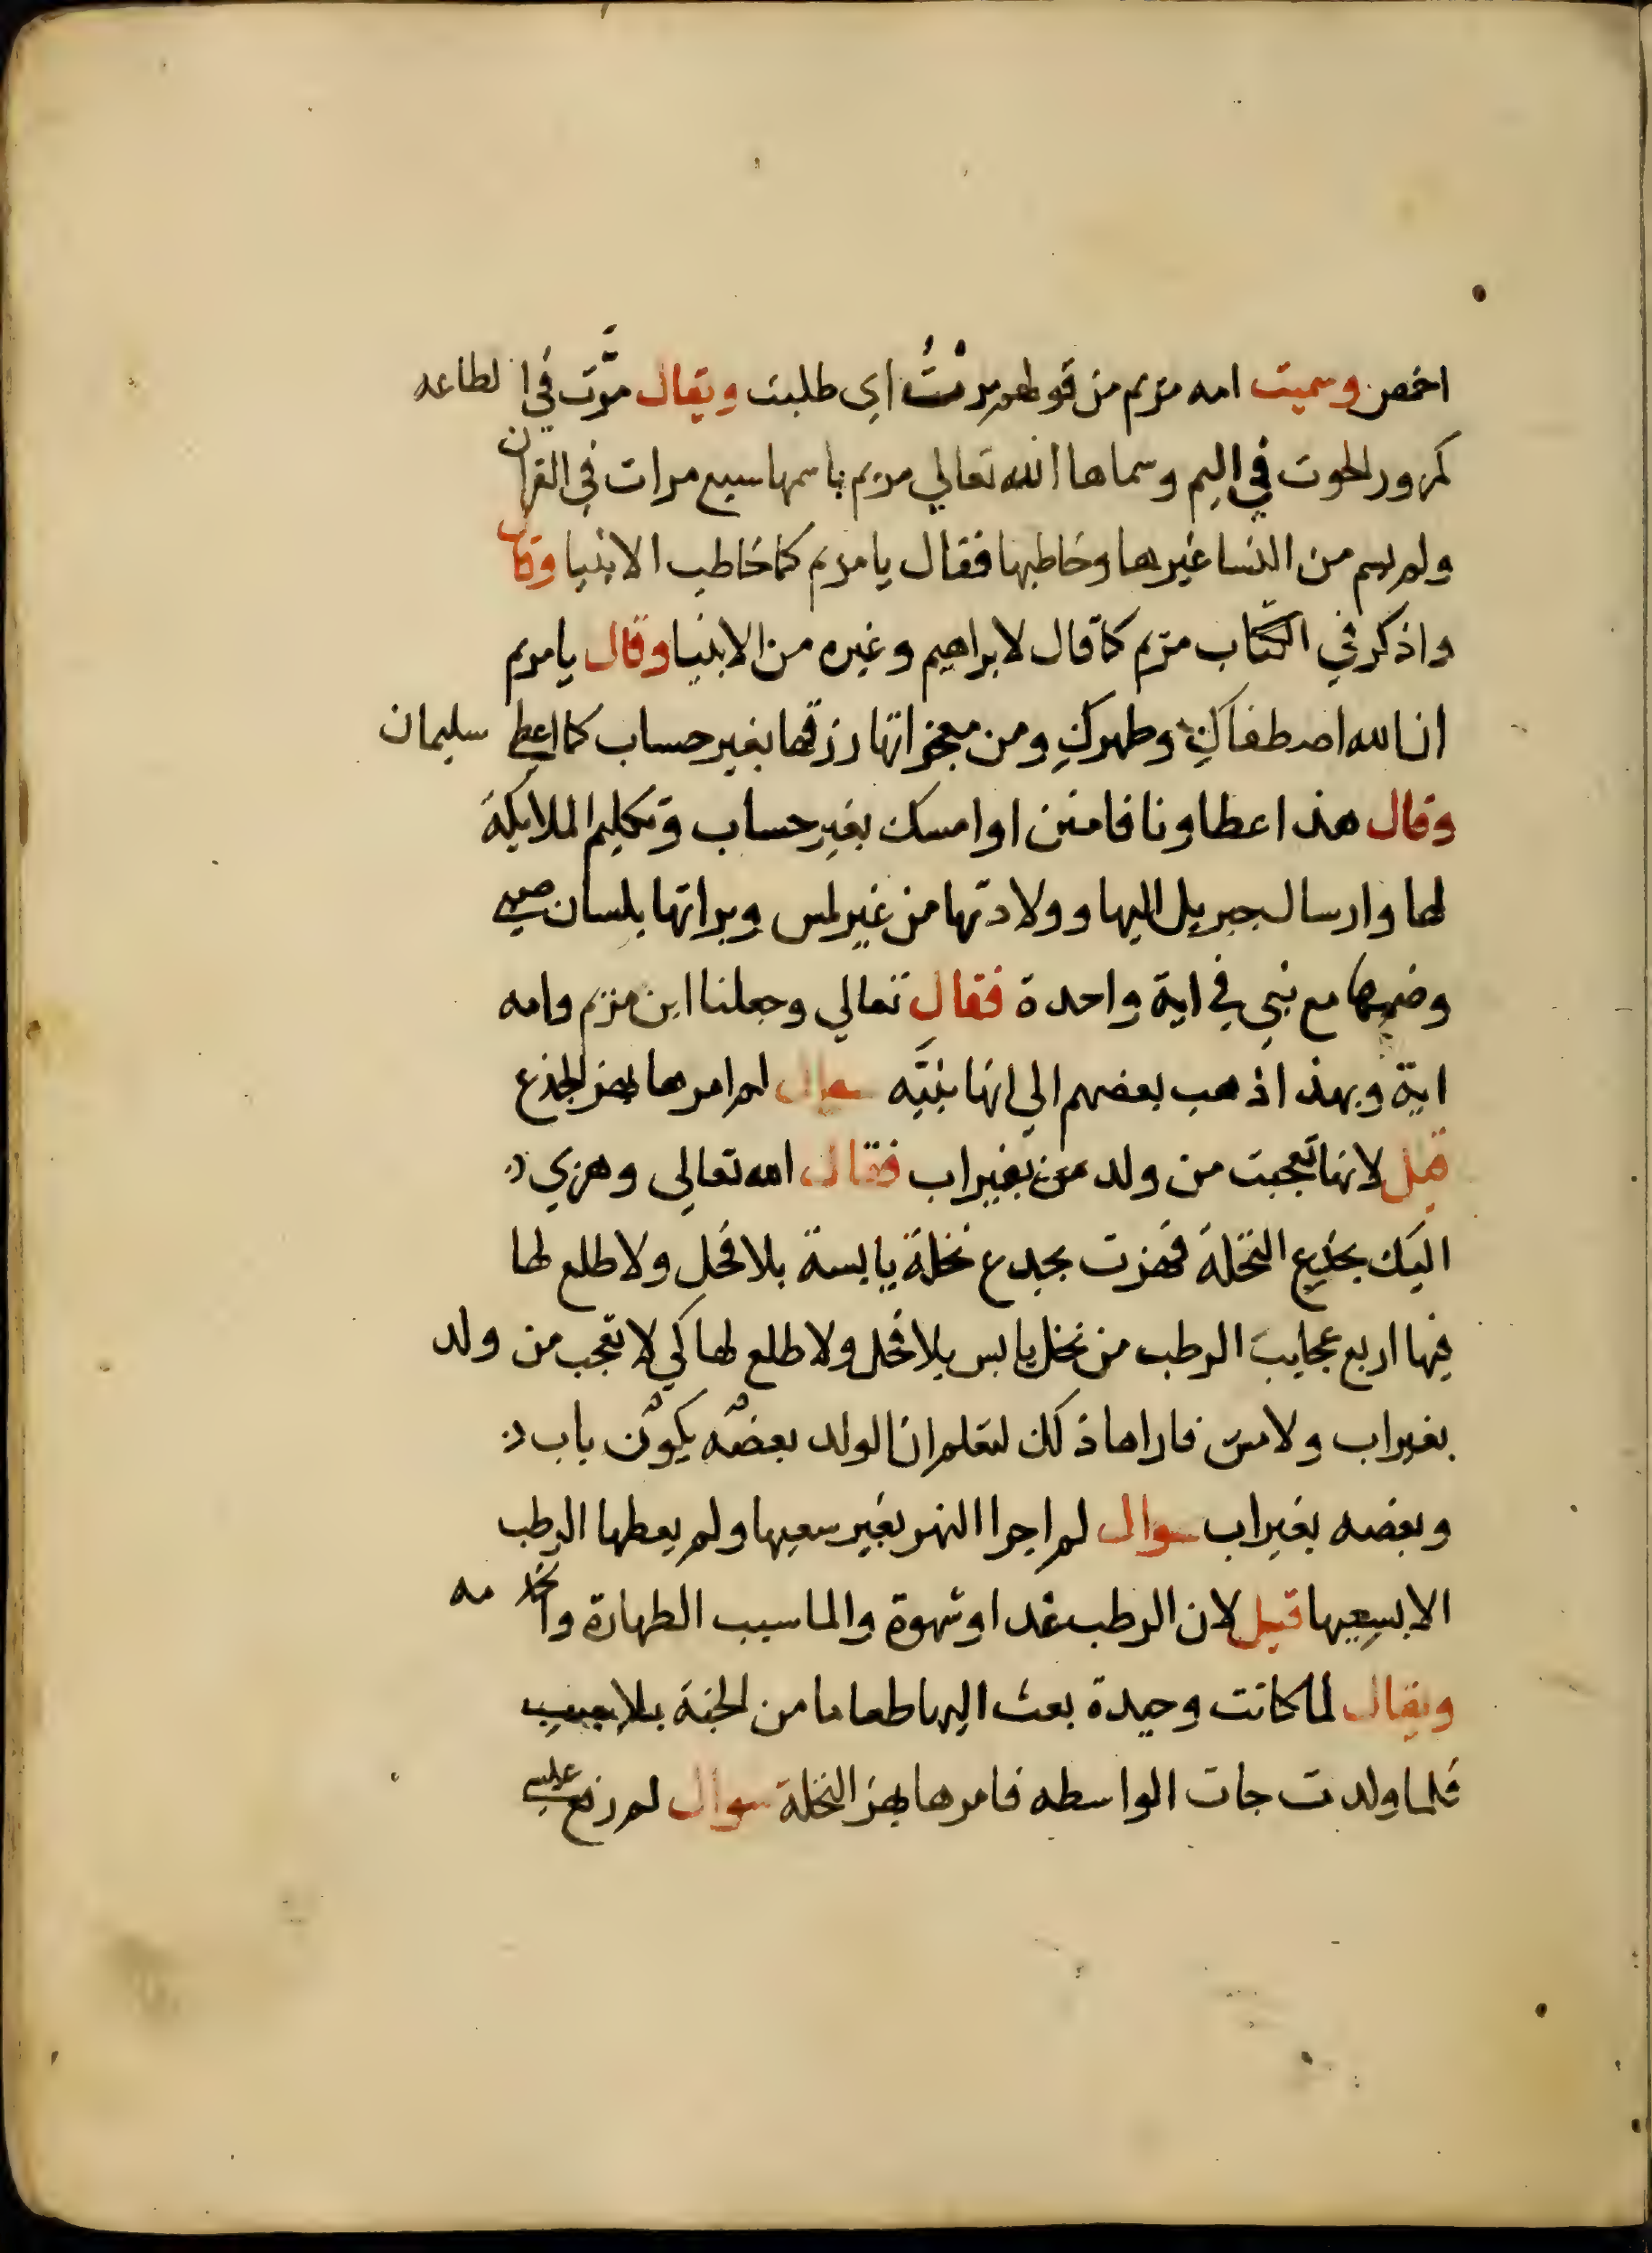 اخمص وسميت امه مريم من قولهم رمْتُ اي طلبت ويقال مرَّت في الطاعه
كمرور الحوت في اليم وسماها الله تعالي مريم باسمها سبع مرات في القران
ولم يسم من النسا غيرها وخاطبها فقال يا مريم كما خاطب الانبيا وقال
واذكر في الكتاب مريم كما قال لابراهيم وغيره من الانبيا وقال يا مريم
ان الله اصطفاكِ وطهركِ ومن معجزاتها رزقها بغير حساب كما اعطي سليمان
وقال هذا عطاونا فامنن او امسك بغير حساب وتكليم الملايكة
لها وارسال جبريل اليها وولادتها من غير لمس وبراتها بلسان صبي
وضمها مع نبي في اية واحدة فقال تعالي وجعلنا ابن مريم وامه
اية وبهذا ذهب بعضهم الي انها نبيَّه سوال لم امرها بهز الجذع
قيل لانها تعجبت من ولد من بغير اب فقال الله تعالي وهزي
اليك بجذع النخلة فهزت بجدع نخلة يابسة بلا فحل ولا طلع لها
فيها اربع عجايب الرطب من نخل يابس بلا فحل ولا طلع لها كي لا تعجب من ولد
بغير اب ولا مس فاراها ذلك لتعلم ان الولد بعضه يكون باب
وبعضه بغير اب سوال لم اجرا النهر بغير سعيها ولم يعطها الرطب
الا بسعيها قيل لان الرطب غدا وشهوة والما سبب الطهارة والخدمه
ويقال لما كانت وحيدة بعث اليها طعاما من الجنة بلا سبب
فلما ولدت جات الواسطه فامرها بهز النخلة سوال لم رفع عيسي